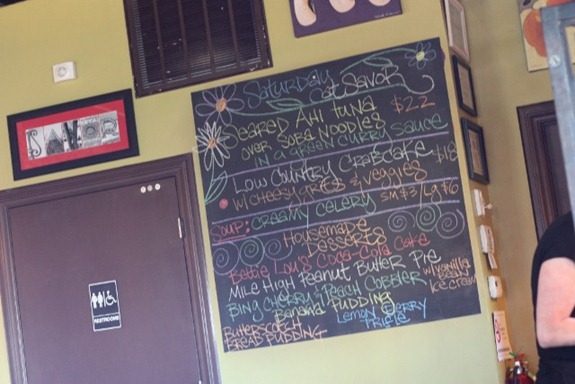 Saturday
Eat Savor
Seared Ahi Tuna $22
over Soba Noodles
in a green curry sauce
Low Country Crabcake $18
w/ cheesy grits & veggies
Soup: Creamy Celery sm $3/Lg $6
Housemade
Desserts
Bettie Lou's Coca-Cola Cake
Mile High Peanut Butter Pie
Bing Cherry & Peach Cobbler w/vanilla
bean
ice cream
Banana Pudding
Lemon Berry
Trifle
Butterscotch
Bread Pudding
RESTROOMS